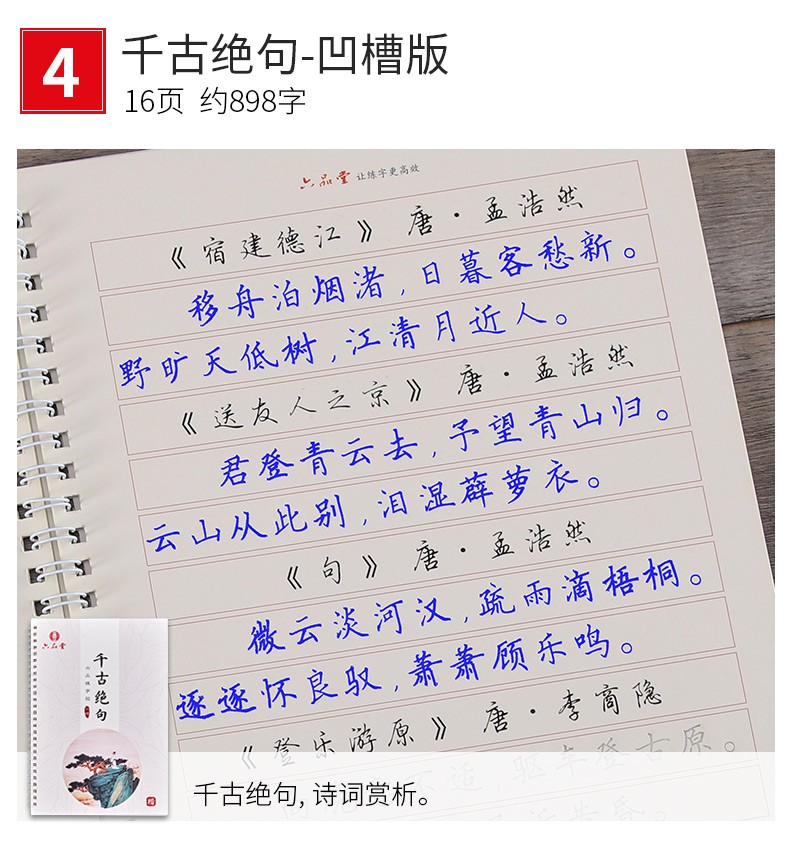 4
千古绝句-凹槽版
16页 约898字
六品堂 让练字更高效
《宿建德江》 唐·孟浩然
移舟泊烟渚,日暮客愁新。
野旷天低树,江清月近人。
《送友人之京》 唐·孟浩然
君登青云去,予望青山归。
云山从此别,泪湿薜萝衣。
《句》 唐·孟浩然
微云淡河汉,疏雨滴梧桐。
逐逐怀良驭,萧萧顾乐鸣。
《登乐游原》 唐·李商隐
不适,驱车登古原。
六品堂
千古绝句
千古绝句, 诗词赏析。